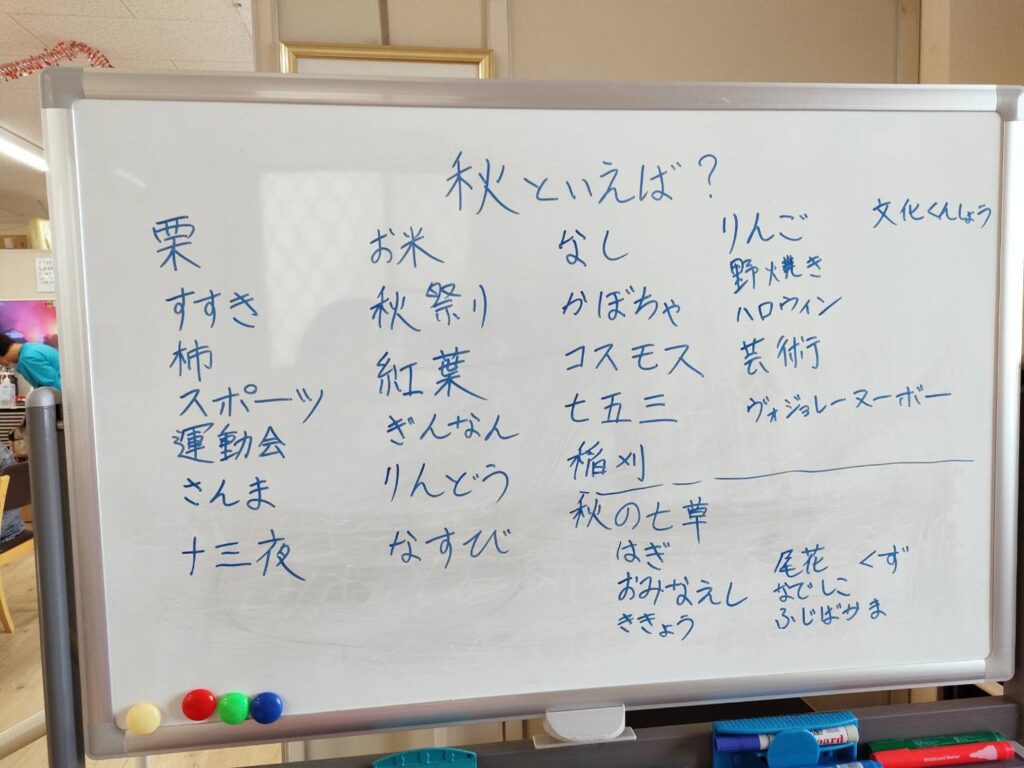 秋といえば?
栗
すすき
柿
スポーツ
運動会
さんま
十三夜
お米
秋祭り
紅葉
ぎんなん
りんどう
なすび
なし
かぼちゃ
コスモス
七五三
稲刈
りんご
野焼き
ハロウィン
芸術
ヴォジョレーヌーボー
文化くんしょう
秋の七草
はぎ
おみなえし
ききょう
尾花 くず
なでしこ
ふじばかま